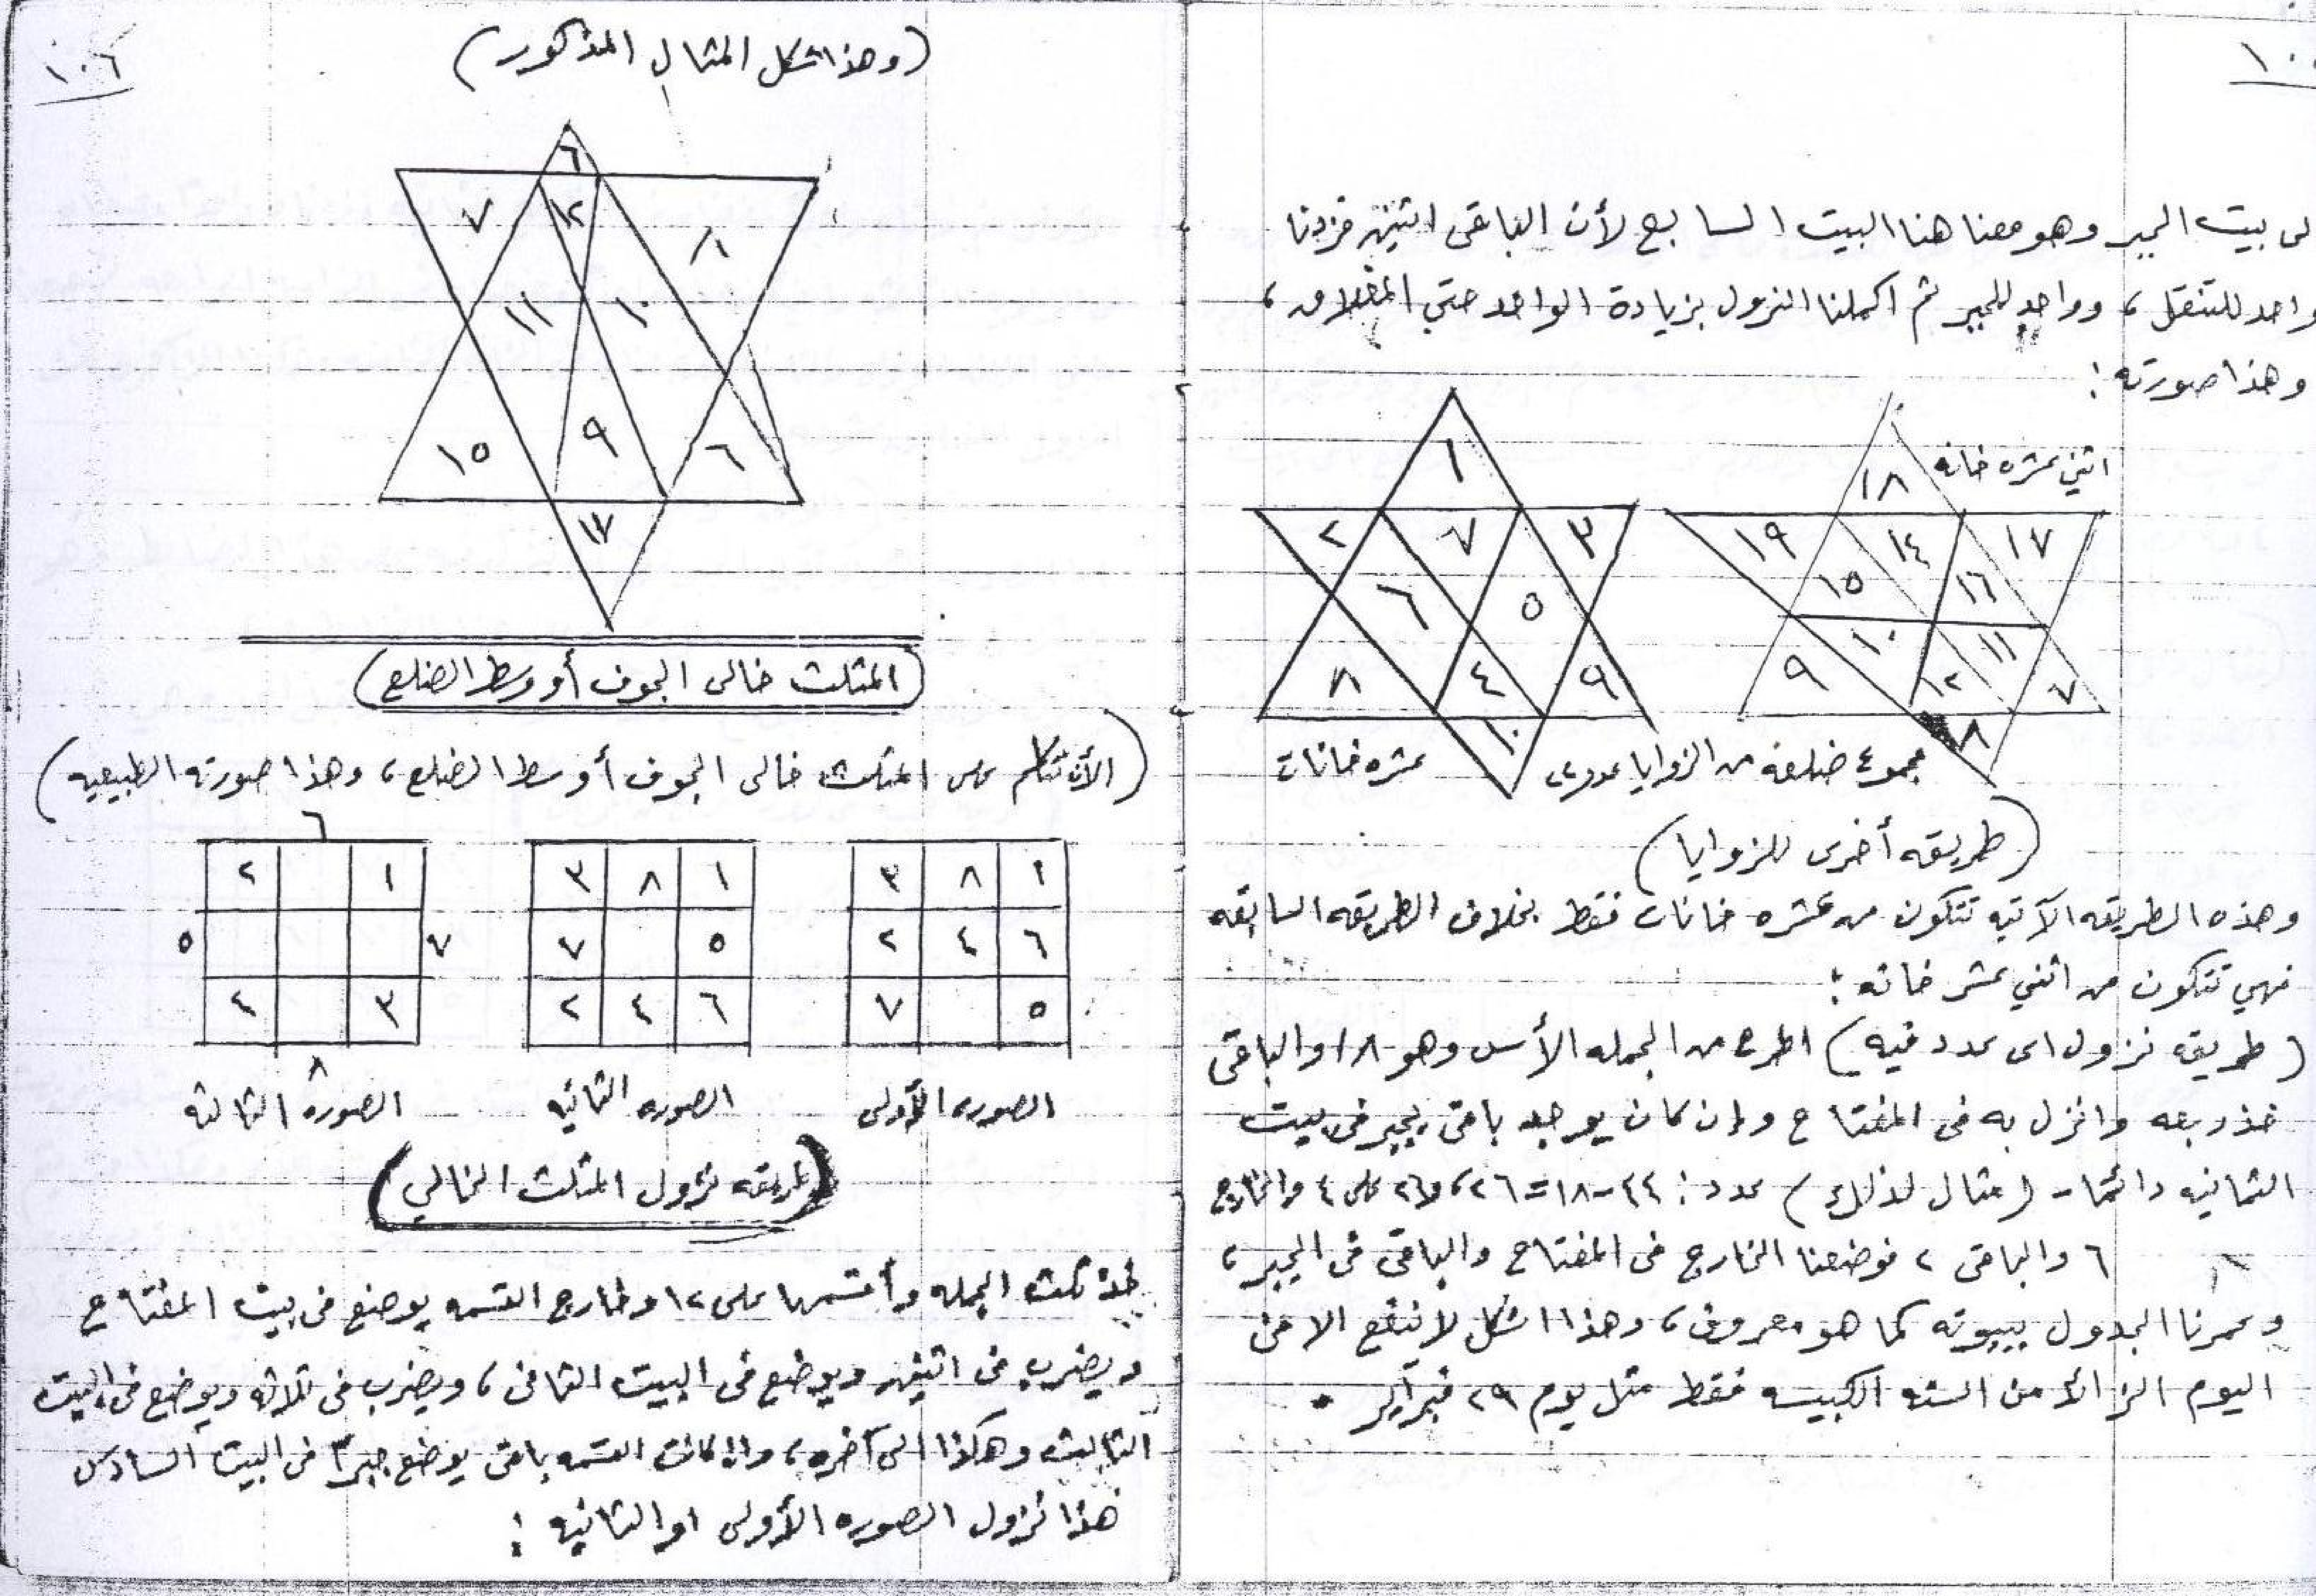 ١٠
لى بيت الجبر وهو معنا هنا البيت السابع لأن الباقى اتنين فزدنا
واحد للتنقل، وواحد للجبر ثم اكملنا النزول بزيادة الواحد حتي المغلاق،
وهذا صورته :
اثني عشره خانه
١٨
١٩ ١٤ ١٧
١٥ ١٦
١٠ ١١
٩ ١٢ ٧
٨
١
٢ ٧ ٣
٦ ٥
٨ ٤ ٩
١٠
مجموع ضلعه من الزوايا عددى
عشره خانات
(طريقه أخرى للزوايا)
وهذه الطريقه الآتيه تتكون من عشره خانات فقط بخلاف الطريقه السابقه
فهي تتكون من اثني عشر خانه :
(طريقه نزول اى عدد فيه) اطرح من الجمله الأس وهو ١٨ والباقى
خذ ربعه وانزل به فى المفتاح وإن كان يوجد باقى يجبر فى بيت
الثمانيه دائما - (مثال لذلك) عدد : ٤٤-١٨=٢٦، و٢٦ على ٤ والخارج
٦ والباقى ٢ فوضعنا الخارج فى المفتاح والباقى فى الجبر،
وعمرنا الجدول ببيوته كما هو معروف، وهذا اشكل لا ينفع الا فى
اليوم الزائد من السنه الكبيسه فقط مثل يوم ٢٩ فبراير .
١٠٦
(وهذا شكل المثال المذكور)
٦
٧ ١٢ ٨
١١ ١٠
١٥ ٩ ٦
١٧
(المثلث خالى الجوف أو وسط الضلع)
(الأن نتكلم على المثلث خالى الجوف أو سط الضلع، وهذا صورته الطبيعيه)
١ ٨ ٣
٦ ٤ ٢
٥ ٧
الصوره الأولى
١ ٨ ٣
٥ ٧
٦ ٤ ٢
الصوره الثانيه
٦
١ ٢
٧ ٥
٣ ٤
٨
الصوره الثالثه
(طريقه نزول المثلث الخالي)
خذ ثلث الجمله وأقسمها على ١٢ وخارج القسمه يوضع فى بيت المفتاح
ويضرب فى اثنين ويوضع فى البيت الثانى، ويضرب فى ثلاثه ويوضع فى البيت
الثالث وهكذا الى آخره، واذا كانت القسمه باقى يوضع جبرا فى البيت السادس
هذا نزول الصوره الأولى او الثانيه :